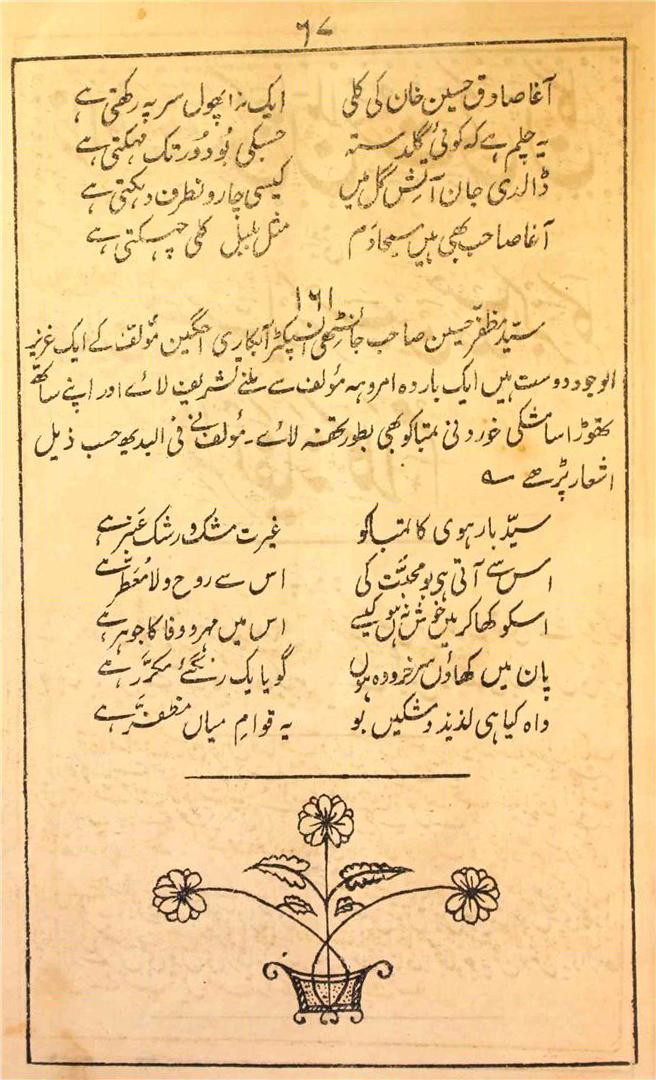 ۶۷
آغا صادق حسین خان کی کلی ایک نہ اپھول سر پہ رکھتی ہے
یہ چلم ہے کہ کوئی گلدستہ جسکی بُو دور تک مہکتی ہے
ڈالدی جان آتشِ گل میں کیسی چارونطرف دہکتی ہے
آغا صاحب بھی ہیں مسیحا دَم مثلِ بلبل کلی چہکتی ہے
۱۶۱
سیّد مظفّر حسین صاحب جانسٹھی انسپکٹر آبکاری مؤلف کے ایک عزیز
الوجود دوست ہیں ایک بار وہ امروہہ مؤلف سے ملنے تشریف لائے اور اپنے ساتھ
تھوڑا سا مشکی خوردنی تمباکو بھی بطور تحفہ لائے۔ مؤلف نے فی البدیہہ حسب ذیل
اشعار پڑھے ؎
سیّد بارہوی کا تمباکو غیرتِ مشک و رشکِ عنبر ہے
اس سے آتی ہی بو محبّت کی اس سے روحِ ولا معطّر ہے
اسکو کھا کر میں خوش نہوں کیسے اس میں مہر و وفا کا جوہر ہے
پان میں کھاؤں سرخرو وہ ہوں گویا یک رنگئے مکرّر ہے
واہ کیا ہی لذیذ و مشکیں بو یہ قوامِ میاں مظفّر ہے